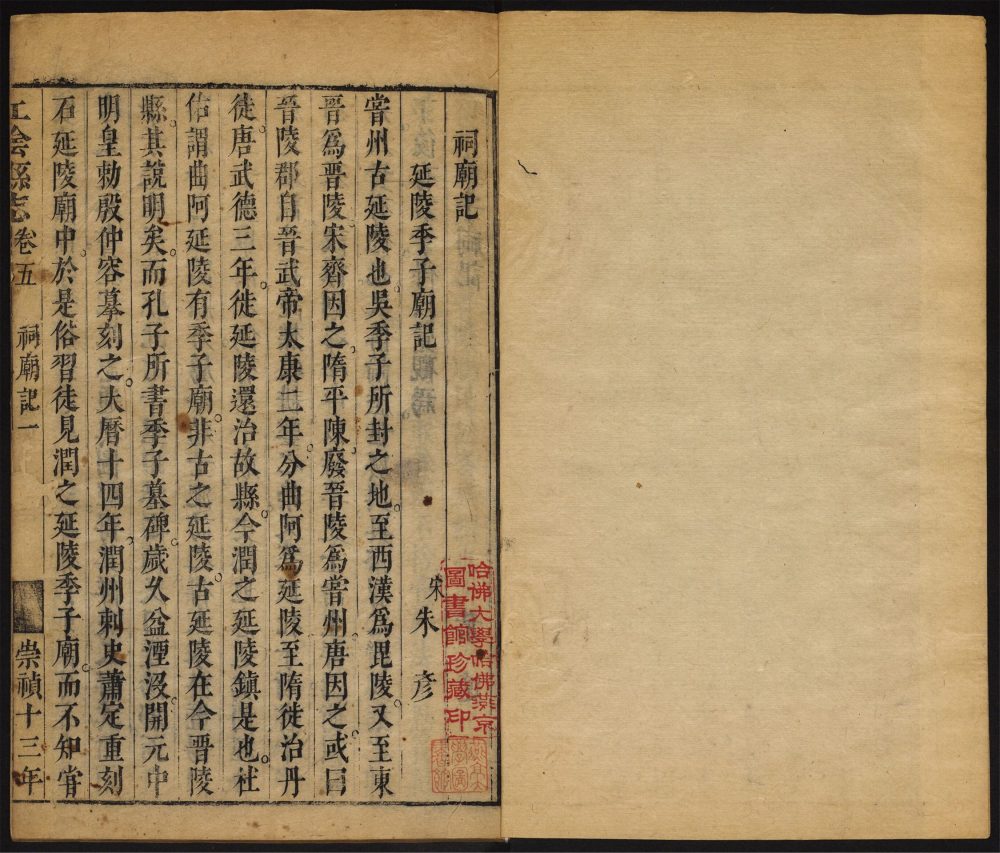 祠廟記
延陵季子廟記
宋朱彦
甞州古延陵也吳季子所封之地至西漢爲毘陵又至東
晉爲晉陵宋齊因之隋平陳廢晉陵爲甞州唐因之或曰
晉陵郡自晉武帝太康二年分曲阿爲延陵至隋徙治丹
徒唐武德三年徙延陵還治故縣今潤之延陵鎮是也杜
佑謂曲阿延陵有季子廟非古之延陵古延陵在今晉陵
縣其說明矣而孔子所書季子墓碑歲久益湮没開元中
明皇勑殷仲容摹刻之大曆十四年潤州刺史蕭定重刻
石延陵廟中於是俗習徒見潤之延陵季子廟而不知甞
江陰縣志卷五
祠廟記一
崇禎十三年
哈佛大學哈佛燕京
圖書館珍藏印